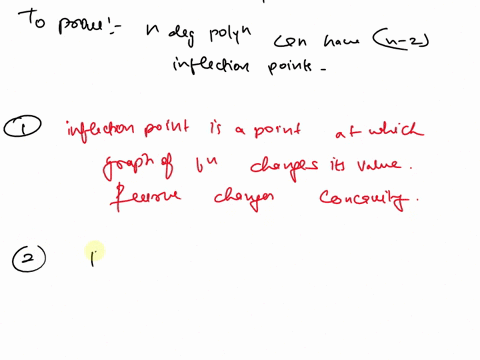 To prove:- n deg polyn can have (n-2)
inflection points -
① inflection point is a point at which
graph of fn changes its value.
changes concavity.
②